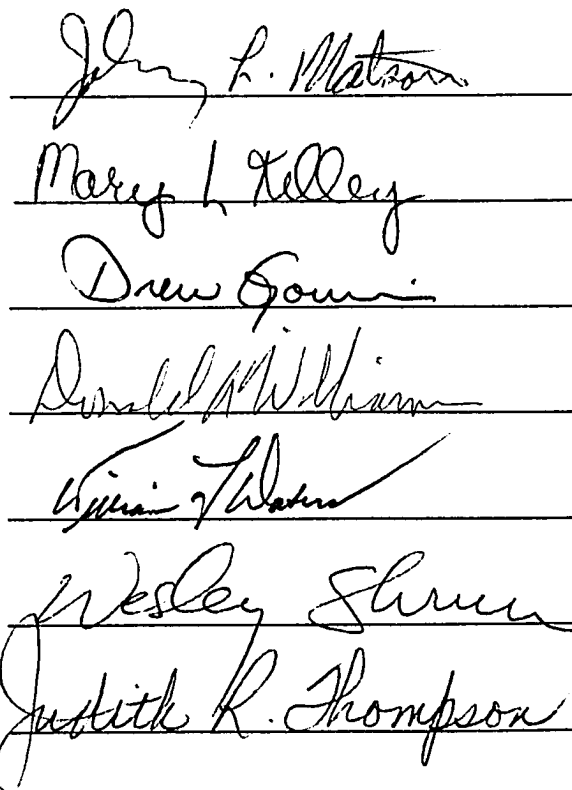 Johnny L. Matson
Mary L Kelley
Drew
Donald A Williamson
William F Waters
Wesley
Judith R. Thompson